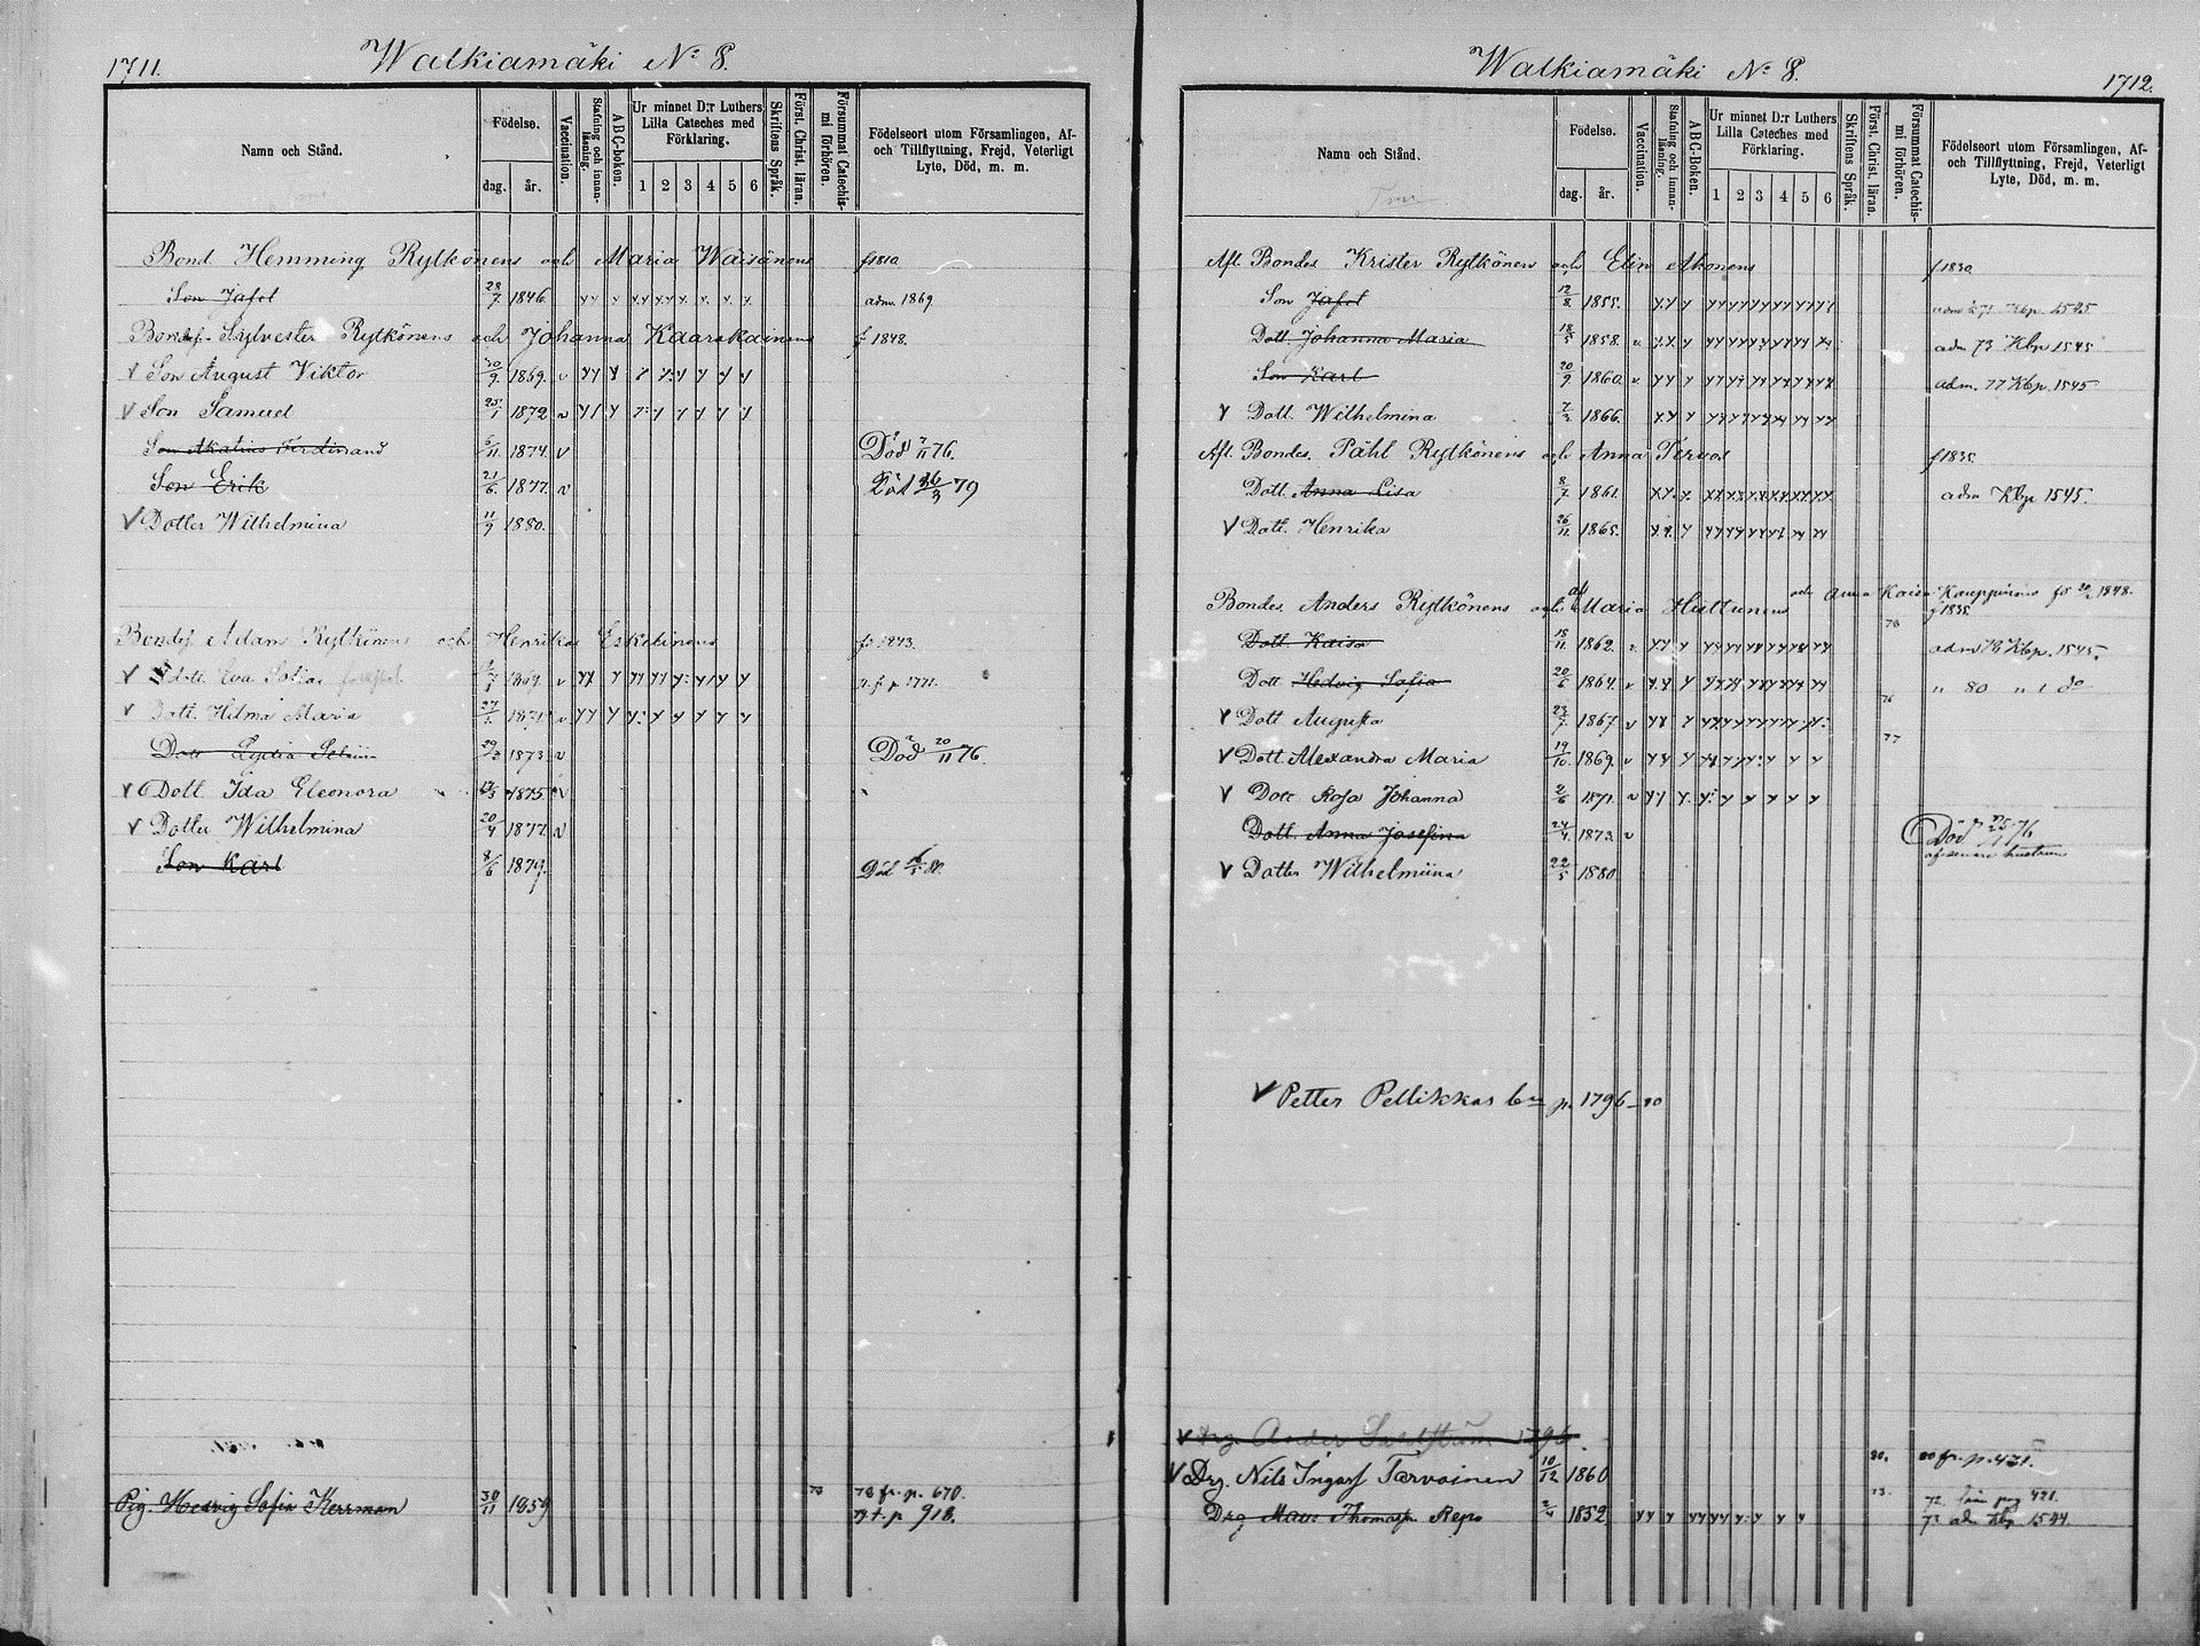 1711.
Walkiamäki No 8.
Namn och Stånd.
Födelse.
dag. år.
Vaccination.
Stafning och innanläsning.
ABC-boken.
Ur minnet D:r Luthers Lilla Cateches med Förklaring.
1 2 3 4 5 6
Skriftens Språk.
Först. Christ. läran.
Försummat Catechismi förhören.
Födelseort utom Församlingen, Af- och Tillflyttning, Frejd, Veterligt Lyte, Död, m. m.
Bond. Hemming Rytkönens och Maria Waisänens f 1810
Son Jafet 28/7 1846. adm. 1869
Sylvester Rytkönens och Johanna Kaarakainens f 1848.
v Son August Viktor 30/9 1869. v
v Son Samuel 25/1 1872 v
Son Ferdinand 5/11 1874. v Död 76.
Son Erik 21/6 1877. v Död 26/3 79
v Dotter Wilhelmina 11/9 1880.
Adam Rytkönens och Henrika Eskelinens f. 1843.
v Dott. Eva Sofia 1869. v
v Dott. Hilma Maria 1871. v
Dott Lydia 1873 v Död 20/11 76.
v Dott Ida Eleonora 1875. v
v Dotter Wilhelmina 20/4 1877. v
Son Karl 8/6 1879. Död 80.
Pig. Hedvig Sofia Herrman 30/11 1859 78 78 fr. p. 670.
79 t. p 918.
Walkiamäki No 8.
1712.
Namn och Stånd.
Födelse.
dag. år.
Vaccination.
Stafning och innanläsning.
ABC-Boken.
Ur minnet D:r Luthers Lilla Cateches med Förklaring.
1 2 3 4 5 6
Skriftens Språk.
Först. Christ. läran.
Försummat Catechismi förhören.
Födelseort utom Församlingen, Af- och Tillflyttning, Frejd, Veterligt Lyte, Död, m. m.
Afl. Bondes Krister Rytkönens och Elin Ahonens f 1830
Son Jafet 12/8 1855. Kbp. 1545
Dott. Johanna Maria 18/5 1858. v adm 73 Kbp 1545
Son Karl 20/9 1860. v adm. 77 Kbp. 1545
v Dott. Wilhelmina 7/3 1866.
Afl. Bondes. Påhl Rytkönens och Anna Tervos f 1835
Dott. Anna Lisa 8/7 1861. adm Kbp 1545.
v Dott. Henrika 26/11 1865.
Bondes. Anders Rytkönens och Maria Huttunens och Anna Kaisa Kauppinens 1848.
f 1835
Dott Kaisa 18/11 1862. v 78 adm 78 Kbp. 1545.
Dott Hedvig Sofia 20/6 1864. v " 80 " t do
v Dott Augusta 23/7 1867 v 76
v Dott. Alexandra Maria 19/10 1869. v 77
v Dott Rosa Johanna 2/6 1871. v
Dott. Anna Josefina 24/4 1873. v Död 76
af senare hustrun
v Dotter Wilhelmiina 22/5 1880
v Petter Pellikkas p. 1796 - 80
v Drg. Ander 1796.
v Drg. Nils Ingass Tarvainen 10/12 1860 80. 80 fr. p. 421.
Drg Maus Thomasson Repo 2/4 1852 73. 72. från pag 421.
73 adm Kbp 1544.